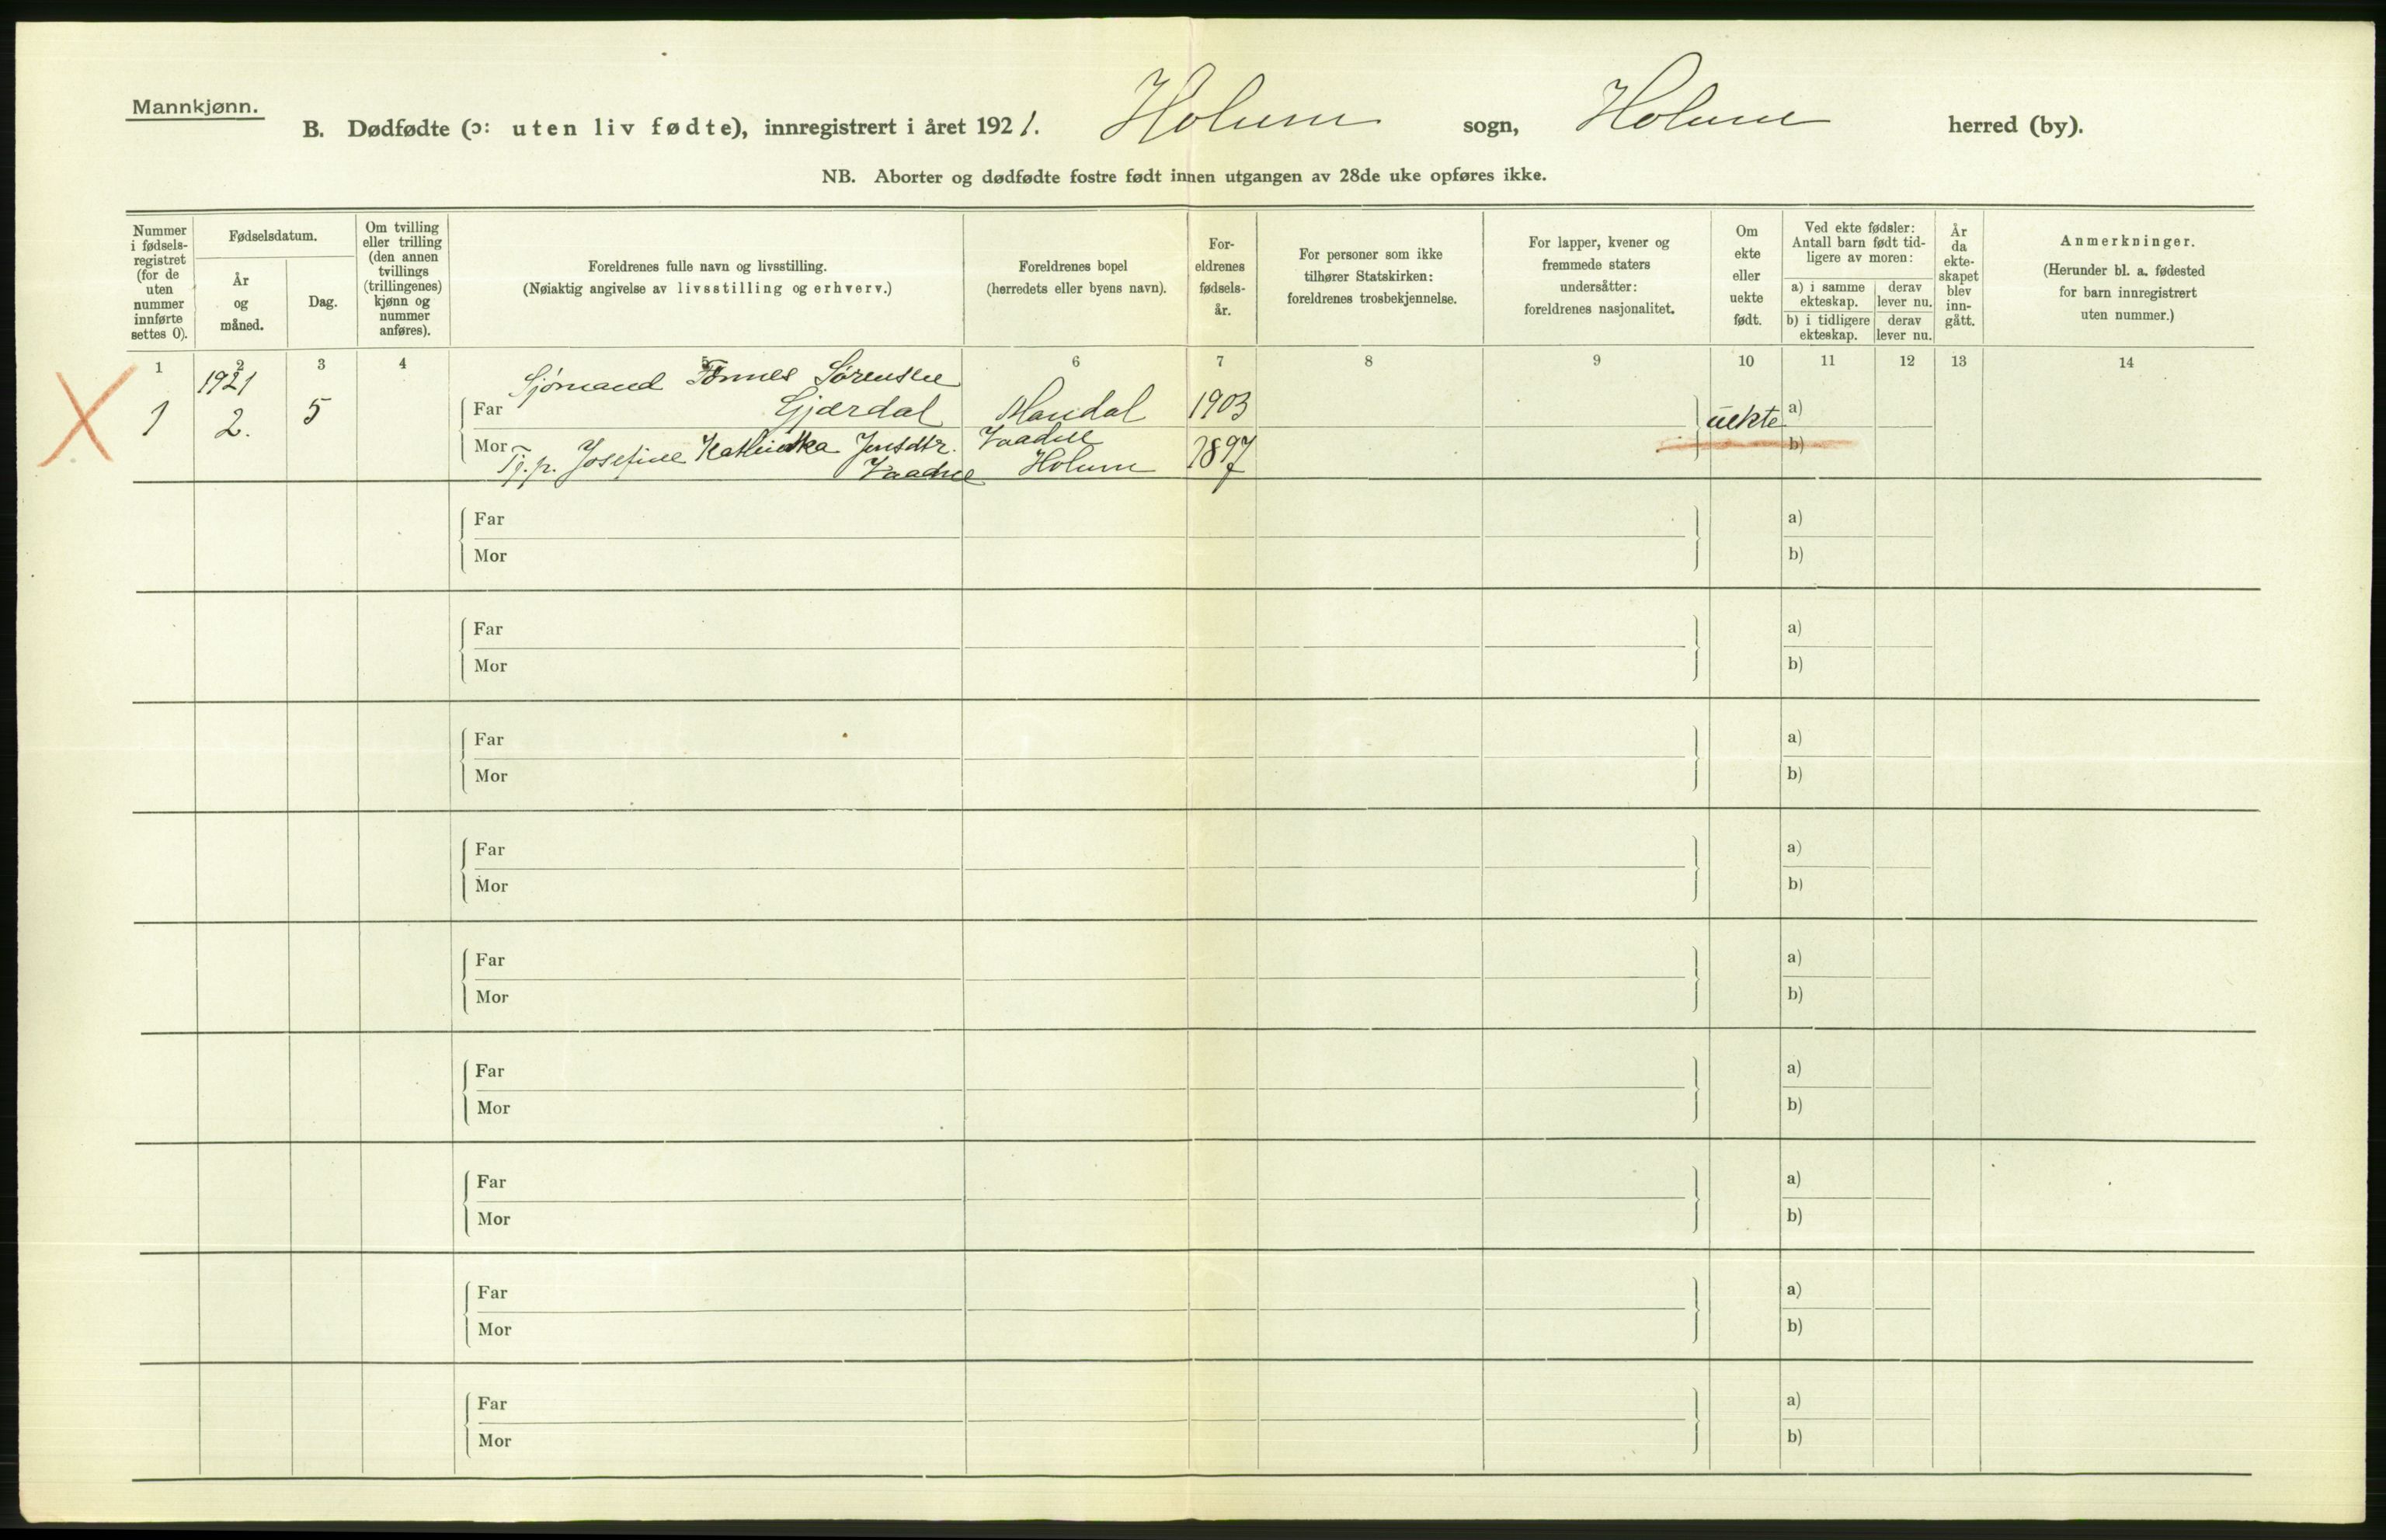 Mannkjønn.
B. Dødfødte (ɔ: uten liv fødte), innregistrert i året 1921. Holum sogn, Holum herred (by).
NB. Aborter og dødfødte fostre født innen utgangen av 28de uke opføres ikke.
Nummer i fødsels-registret (for de uten nummer innførte settes 0).
Fødselsdatum.
År og måned.
Dag.
Om tvilling eller trilling (den annen tvillings (trillingenes) kjønn og nummer anføres).
Foreldrenes fulle navn og livsstilling.
(Nøiaktig angivelse av livsstilling og erhverv.)
Foreldrenes bopel
(herredets eller byens navn).
For-eldrenes fødsels-år.
For personer som ikke tilhører Statskirken: foreldrenes trosbekjennelse.
For lapper, kvener og fremmede staters undersåtter: foreldrenes nasjonalitet.
Om ekte eller uekte født.
Ved ekte fødsler: Antall barn født tid-ligere av moren:
a) i samme ekteskap.
derav lever nu.
b) i tidligere ekteskap.
derav lever nu.
År da ekte-skapet blev inn-gått.
Anmerkninger.
(Herunder bl. a. fødested for barn innregistrert uten nummer.)
1 2 3 4 5 6 7 8 9 10 11 12 13 14
1921 Sjømand Sørensen
1 2. 5 Far Gjærdal Mandal 1903 uekte a)
Mor Tj.p. Josefine Jensdtr. Vaadne b)
Vaadne Holum 1897
Far a)
Mor b)
Far a)
Mor b)
Far a)
Mor b)
Far a)
Mor b)
Far a)
Mor b)
Far a)
Mor b)
Far a)
Mor b)
Far a)
Mor b)
Far a)
Mor b)